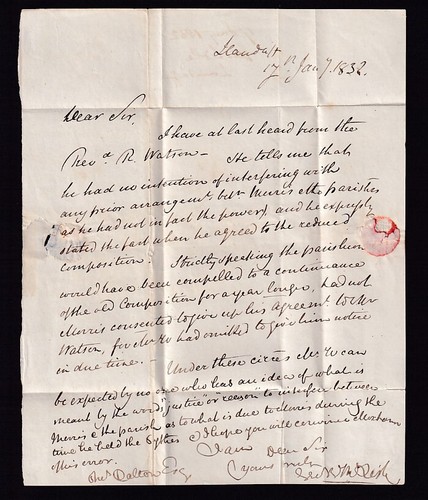 Llandaff
17th Jany. 1832.
Dear Sir,
I have at last heard from the
Revd. R. Watson – He tells me that
he had no intention of interfering with
any prior arrangemt. betn. Morris & the parishes
as he had not in fact the power, and he expressly
stated the fact when he agreed to the reduced
Composition. Strictly speaking the parishrs.
would have been compelled to a continuance
of the old Composition for a year longer, had not
Morris consented to give up his Agreemt. to Mr
Watson, for Mr W had omitted to give him notice
in due time. – Under these circes Mr. W can
be expected by no one who has an idea of what is
meant by the word "justice" or "reason" to interfere between
Morris & the parish as to what is due to Morris during the
time he held the Tythes & I hope you will convince
of his error. I am Dear Sir
yours truly
Dalton Esq